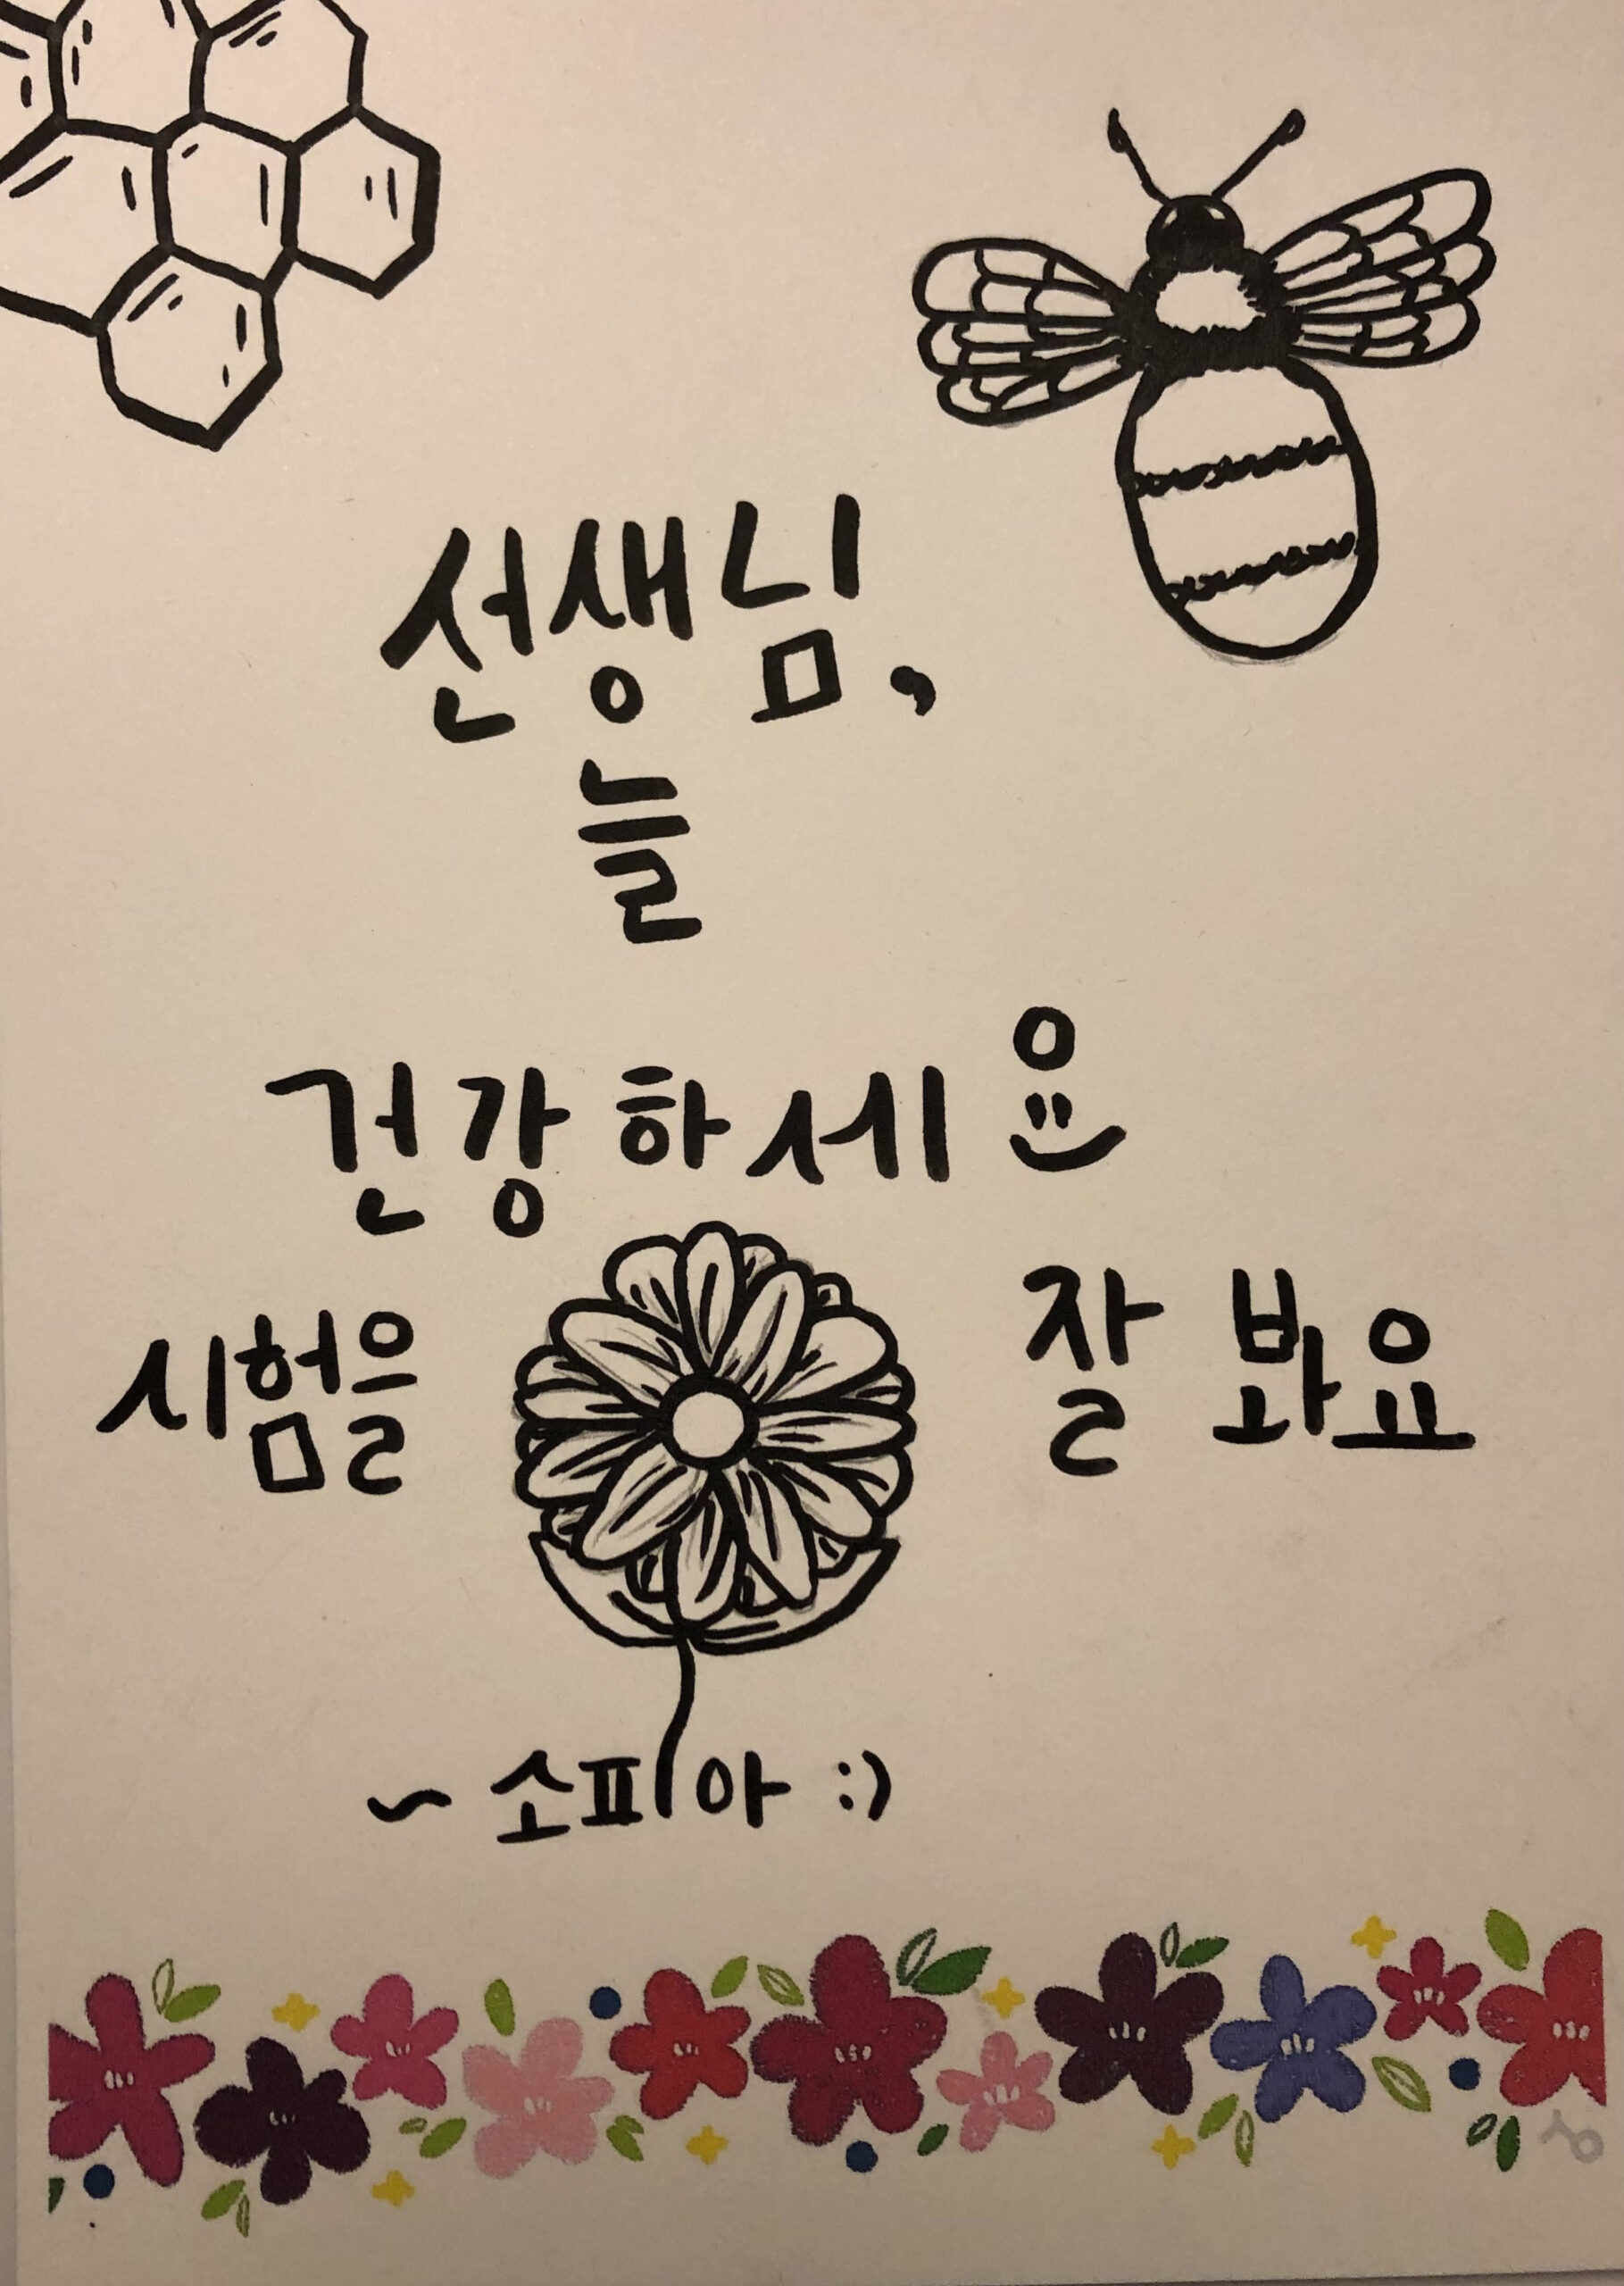 선생님,
늘
건강하세요
시험을 잘 봐요
~ 소피아 :)